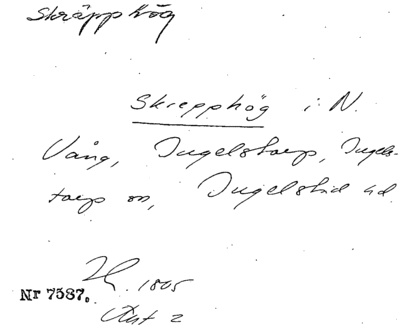 Skräpphög
Skrepphög i N.
Vång, Ingelstorp, Ingels-
torp sn, Ingelstad hd
1805
Nr 7587.
Akt 2